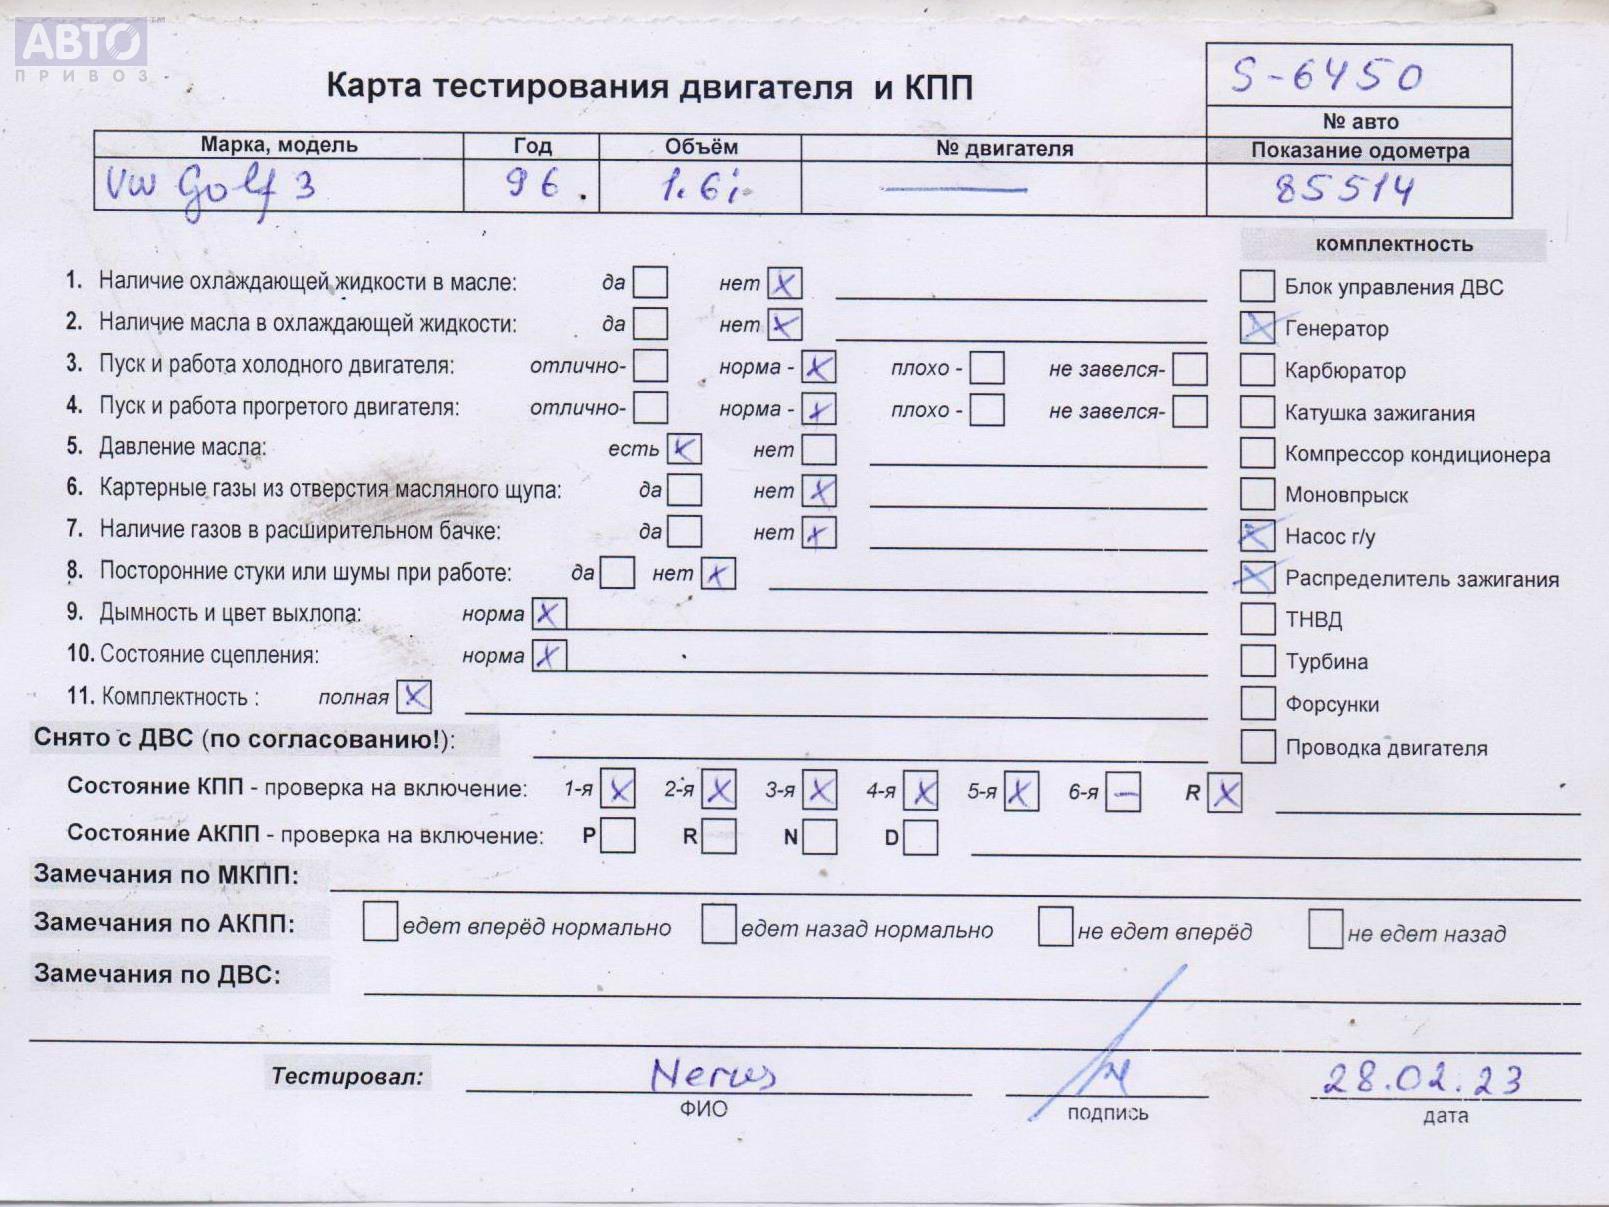 АВТО
ПРИВОЗ
Карта тестирования двигателя и КПП
S-6450
№ авто
Марка, модель Год Объём № двигателя Показание одометра
VW Golf 3 96. 1.6i 85514
комплектность
1. Наличие охлаждающей жидкости в масле: да нет X Блок управления ДВС
2. Наличие масла в охлаждающей жидкости: да нет X X Генератор
3. Пуск и работа холодного двигателя: отлично- норма - X плохо - не завелся- Карбюратор
4. Пуск и работа прогретого двигателя: отлично- норма - X плохо - не завелся- Катушка зажигания
5. Давление масла: есть X нет Компрессор кондиционера
6. Картерные газы из отверстия масляного щупа: да нет X Моновпрыск
7. Наличие газов в расширительном бачке: да нет X X Насос г/у
8. Посторонние стуки или шумы при работе: да нет X X Распределитель зажигания
9. Дымность и цвет выхлопа: норма X ТНВД
10. Состояние сцепления: норма X Турбина
11. Комплектность : полная X Форсунки
Снято с ДВС (по согласованию!): Проводка двигателя
Состояние КПП - проверка на включение: 1-я X 2-я X 3-я X 4-я X 5-я X 6-я — R X
Состояние АКПП - проверка на включение: P R N D
Замечания по МКПП:
Замечания по АКПП: едет вперёд нормально едет назад нормально не едет вперёд не едет назад
Замечания по ДВС:
Тестировал: 28.02.23
ФИО подпись дата